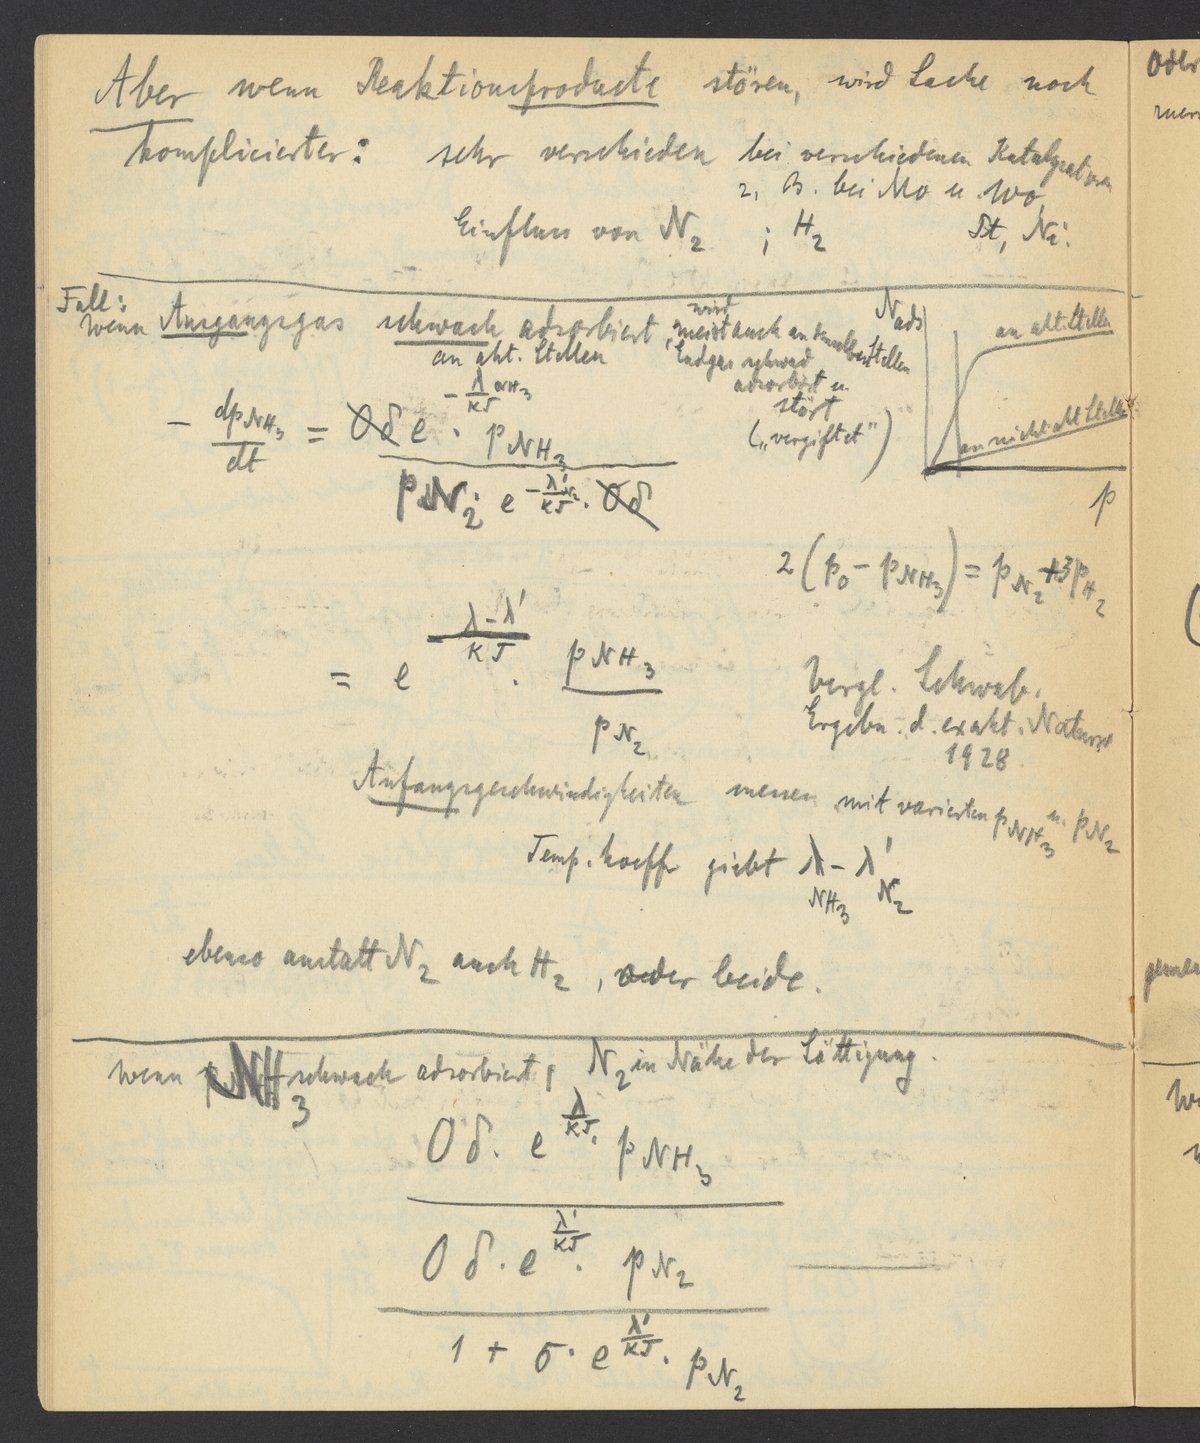 Aber wenn Reaktionsproducte stören, wird Sache noch
komplicierter: sehr verschieden bei verschiedenen Katalysatoren
z. B. bei Mo u. Wo,
Einfluss von N2 ; H2 Pt, Ni.
Fall:
wenn Ausgangsgas schwach adsorbiert,
an akt. Stellen
wird
meist auch an denselben Stellen
Endgas schwach
adsorbiert u.
stört
("vergiftet")
Nads
an akt. Stellen
an nicht akt. Stellen
p
- dpNH3/dt = Oδ e^(-λ/KT NH3) · pNH3
pN2 · e^(-λ'/KT N2) · Oδ
2(p0 - pNH3) = pN2 + 3pH2
= e^(-(λ-λ')/KT) · pNH3/pN2
Vergl. Schwab.
Ergebn. d. exakt. Naturw
1928.
Anfangsgeschwindigkeiten messen mit variierten pNH3 u. pN2
Temp. koeff giebt λ - λ'
NH3 N2
ebenso anstatt N2 auch H2, oder beide.
wenn NH3 schwach adsorbiert, N2 in Nähe der Sättigung.
Oδ · e^(λ/KT) · pNH3
Oδ · e^(λ'/KT) · pN2
1 + σ · e^(λ'/KT) · pN2
Oder